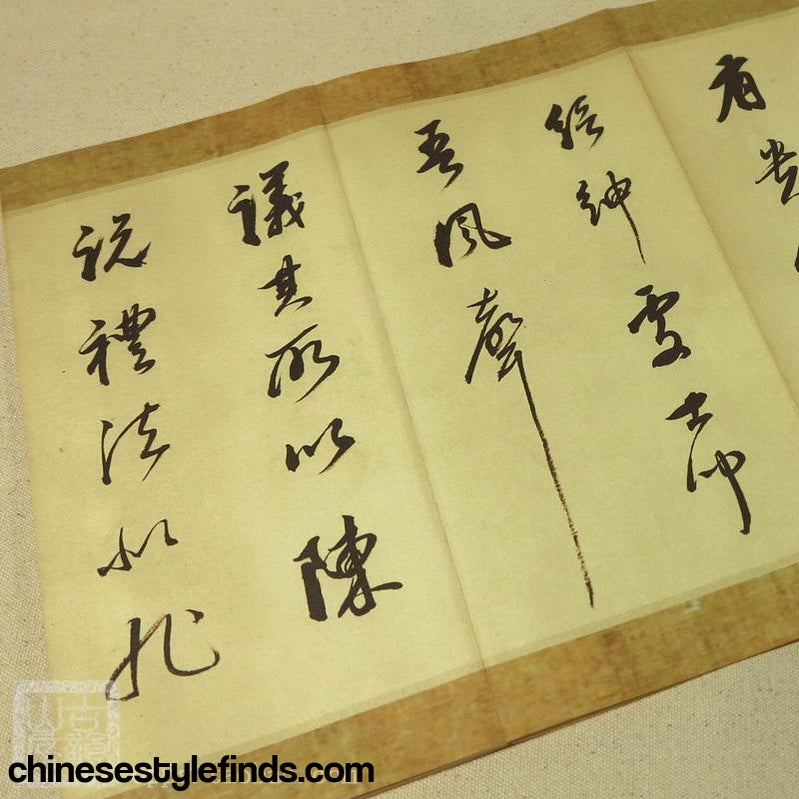 有貴
縉紳處士聞
吾風聲
議其所以陳
說禮法是非
chinesestylefinds.com